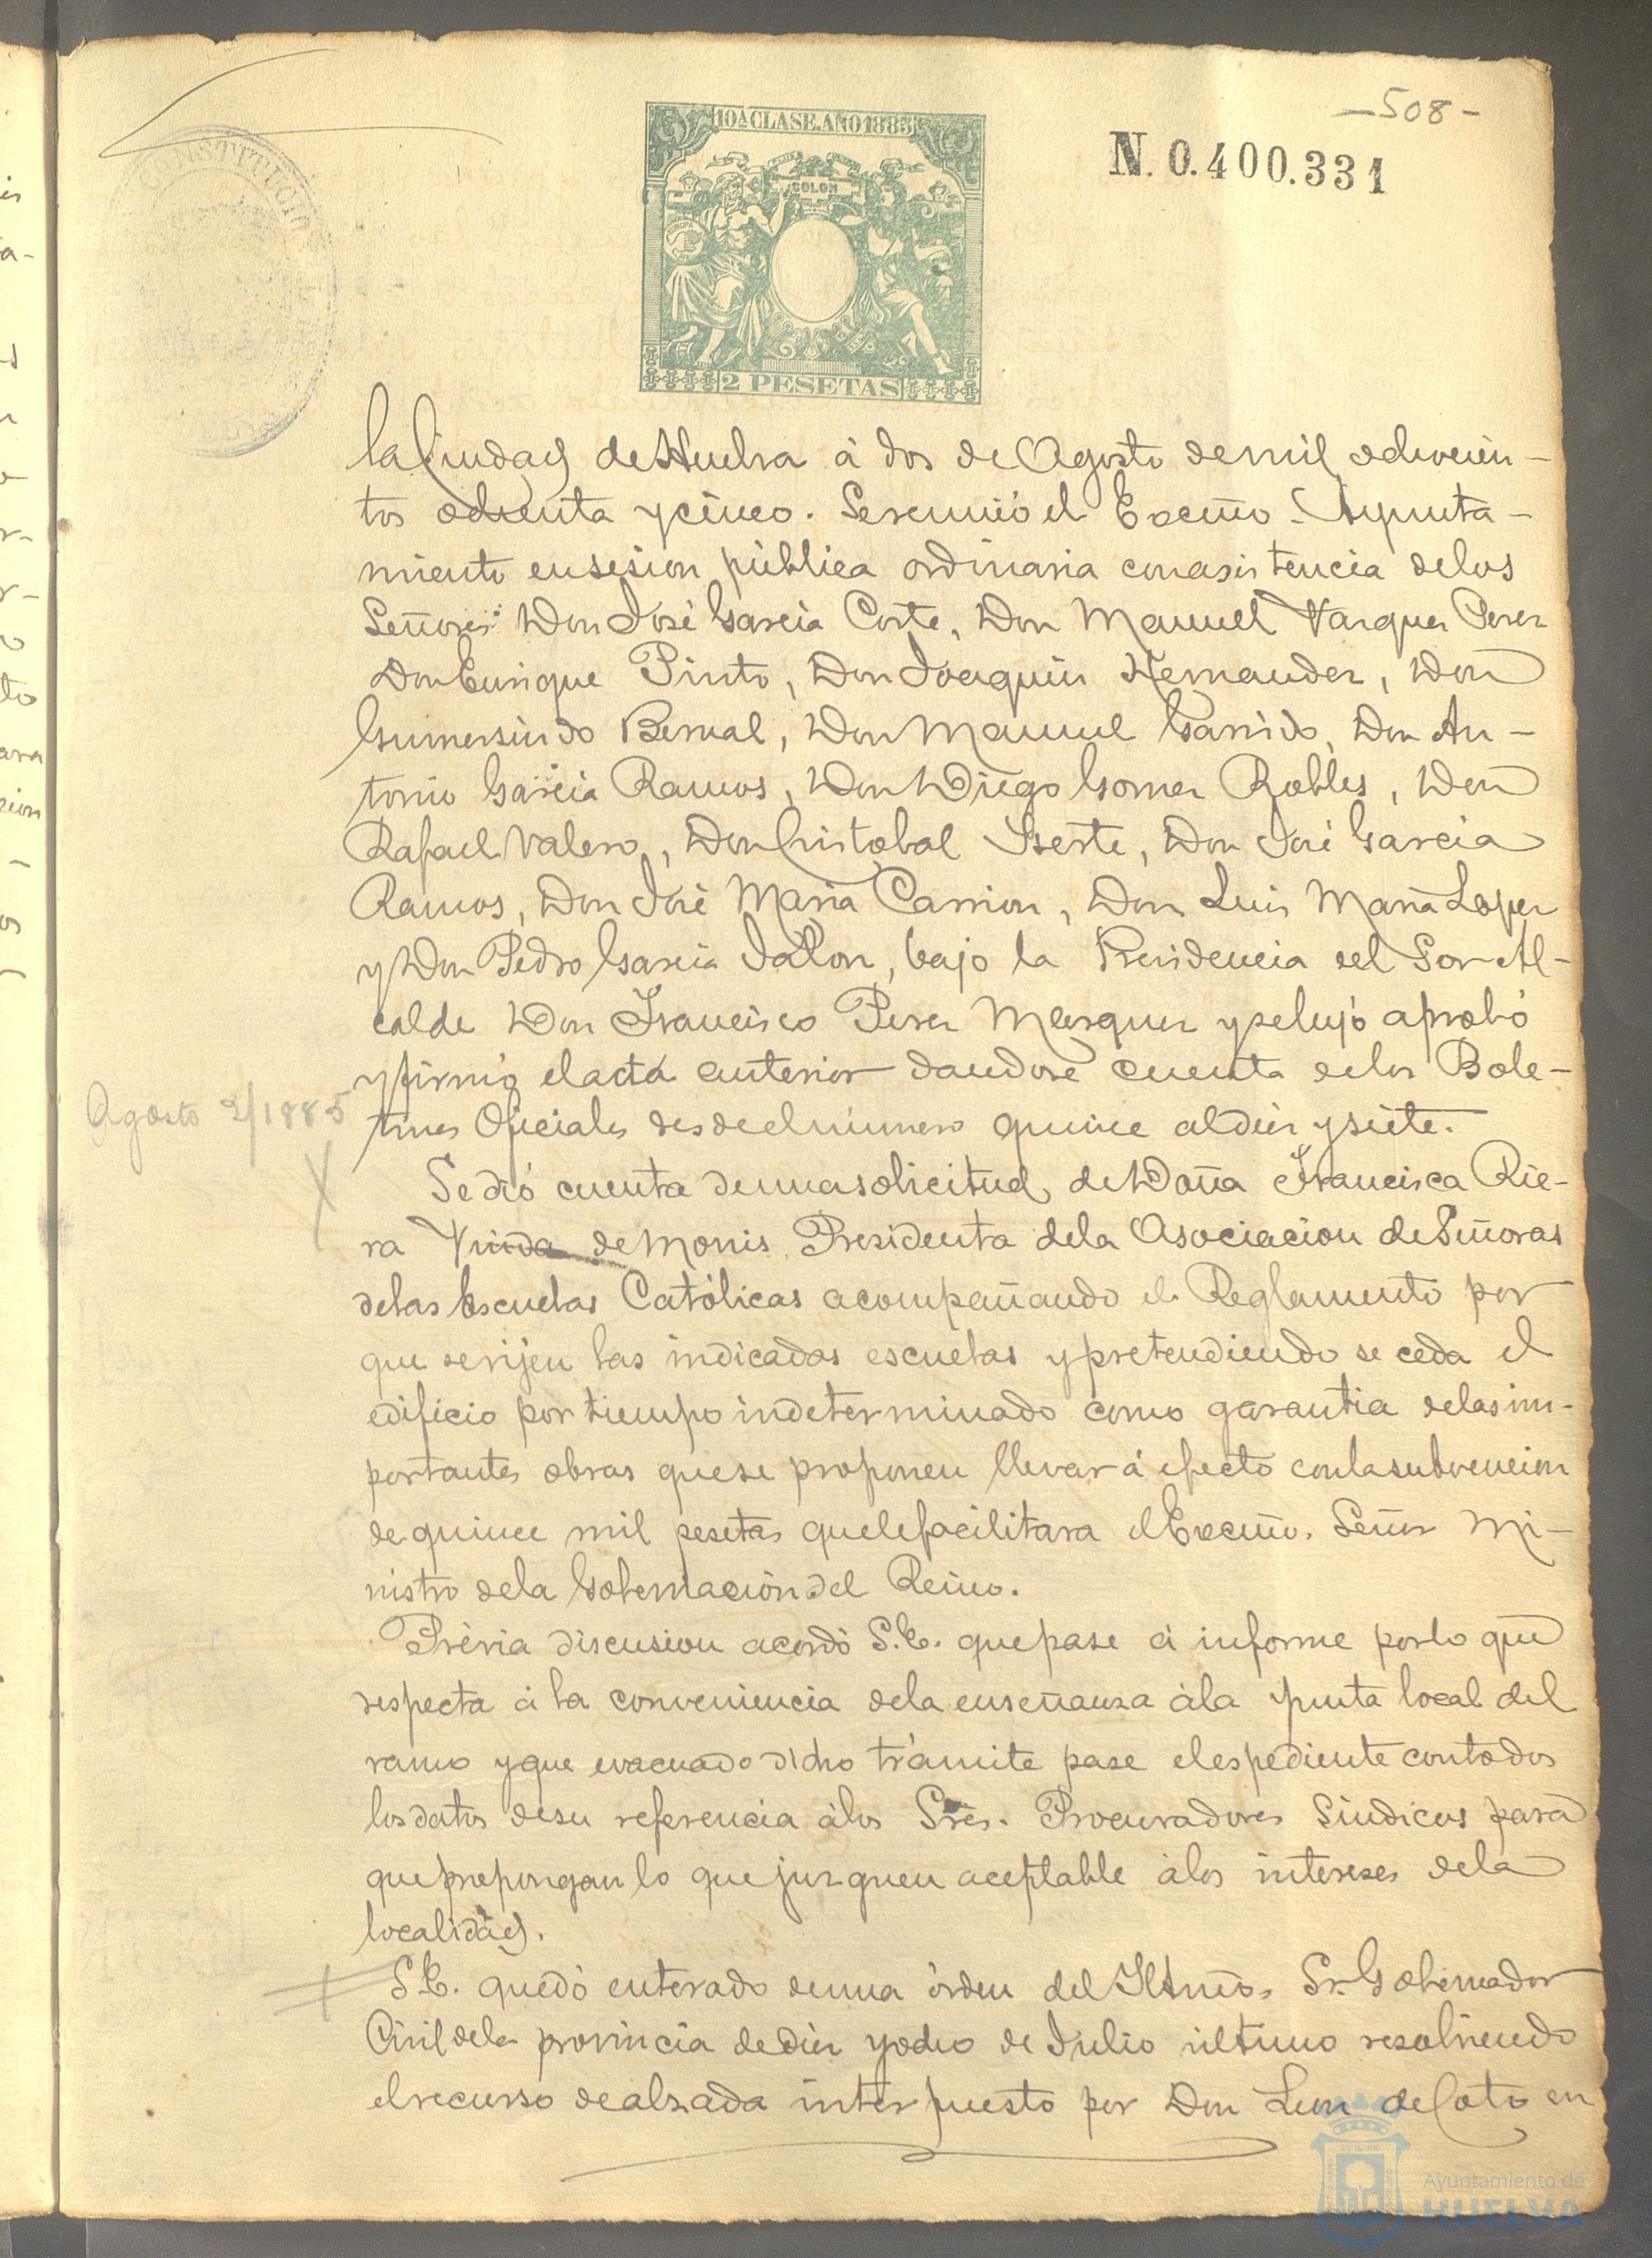 —508-
10ª CLASE. AÑO 1885
N. 0.400.331
COLON
EUROPA
2 PESETAS
CONSTITUCIO
la Ciudad de Huelva á dos de Agosto de mil ochocien-
tos ochenta y cinco. Se reunió el Excmo. Ayunta-
miento en sesion pública ordinaria con asistencia de los
Señores Don José Garcia Corte, Don Manuel Vazquez Perez
Don Enrique Pinto, Don Joaquin Hernandez, Don
Gumersindo Bernal, Don Manuel Garrido, Don An-
tonio Garcia Ramos, Don Diego Gomez Robles, Don
Rafael Valero, Don Cristobal Iserte, Don José Garcia
Ramos, Don José Maria Carrion, Don Luis Maria Lopez
y Don Pedro Garcia Jalon, bajo la Presidencia del Sor Al-
calde Don Francisco Perez Marquez y se leyó aprobó
y firmó el acta anterior dandose cuenta de los Bole-
tines Oficiales desde el número quince al diez y siete.
Agosto 2/1885
Se dió cuenta de una solicitud de Doña Francisca Rie-
ra Viuda de Monis Presidenta de la Asociacion de Señoras
de las Escuelas Católicas acompañando el Reglamento por
que se rijen las indicadas escuelas y pretendiendo se ceda el
edificio por tiempo indeterminado como garantia de las im-
portantes obras que se proponen llevar á efecto con la subvencion
de quince mil pesetas que le facilitara el Excmo. Señor Mi-
nistro de la Gobernación del Reino.
Prévia discusion acordó S.E. que pase á informe por lo que
respecta á la conveniencia de la enseñanza á la junta local del
ramo y que evacuado dicho trámite pase el espediente con todos
los datos de su referencia á los Sres. Procuradores Sindicos para
que propongan lo que juzguen aceptable á los intereses de la
localidad.
S.E. quedó enterado de una órden del Iltmo. Sr. Gobernador
Civil de la provincia de diez y ocho de Julio último resolviendo
el recurso de alzada interpuesto por Don Leon de Coto en
Ayuntamiento de
HUELVA